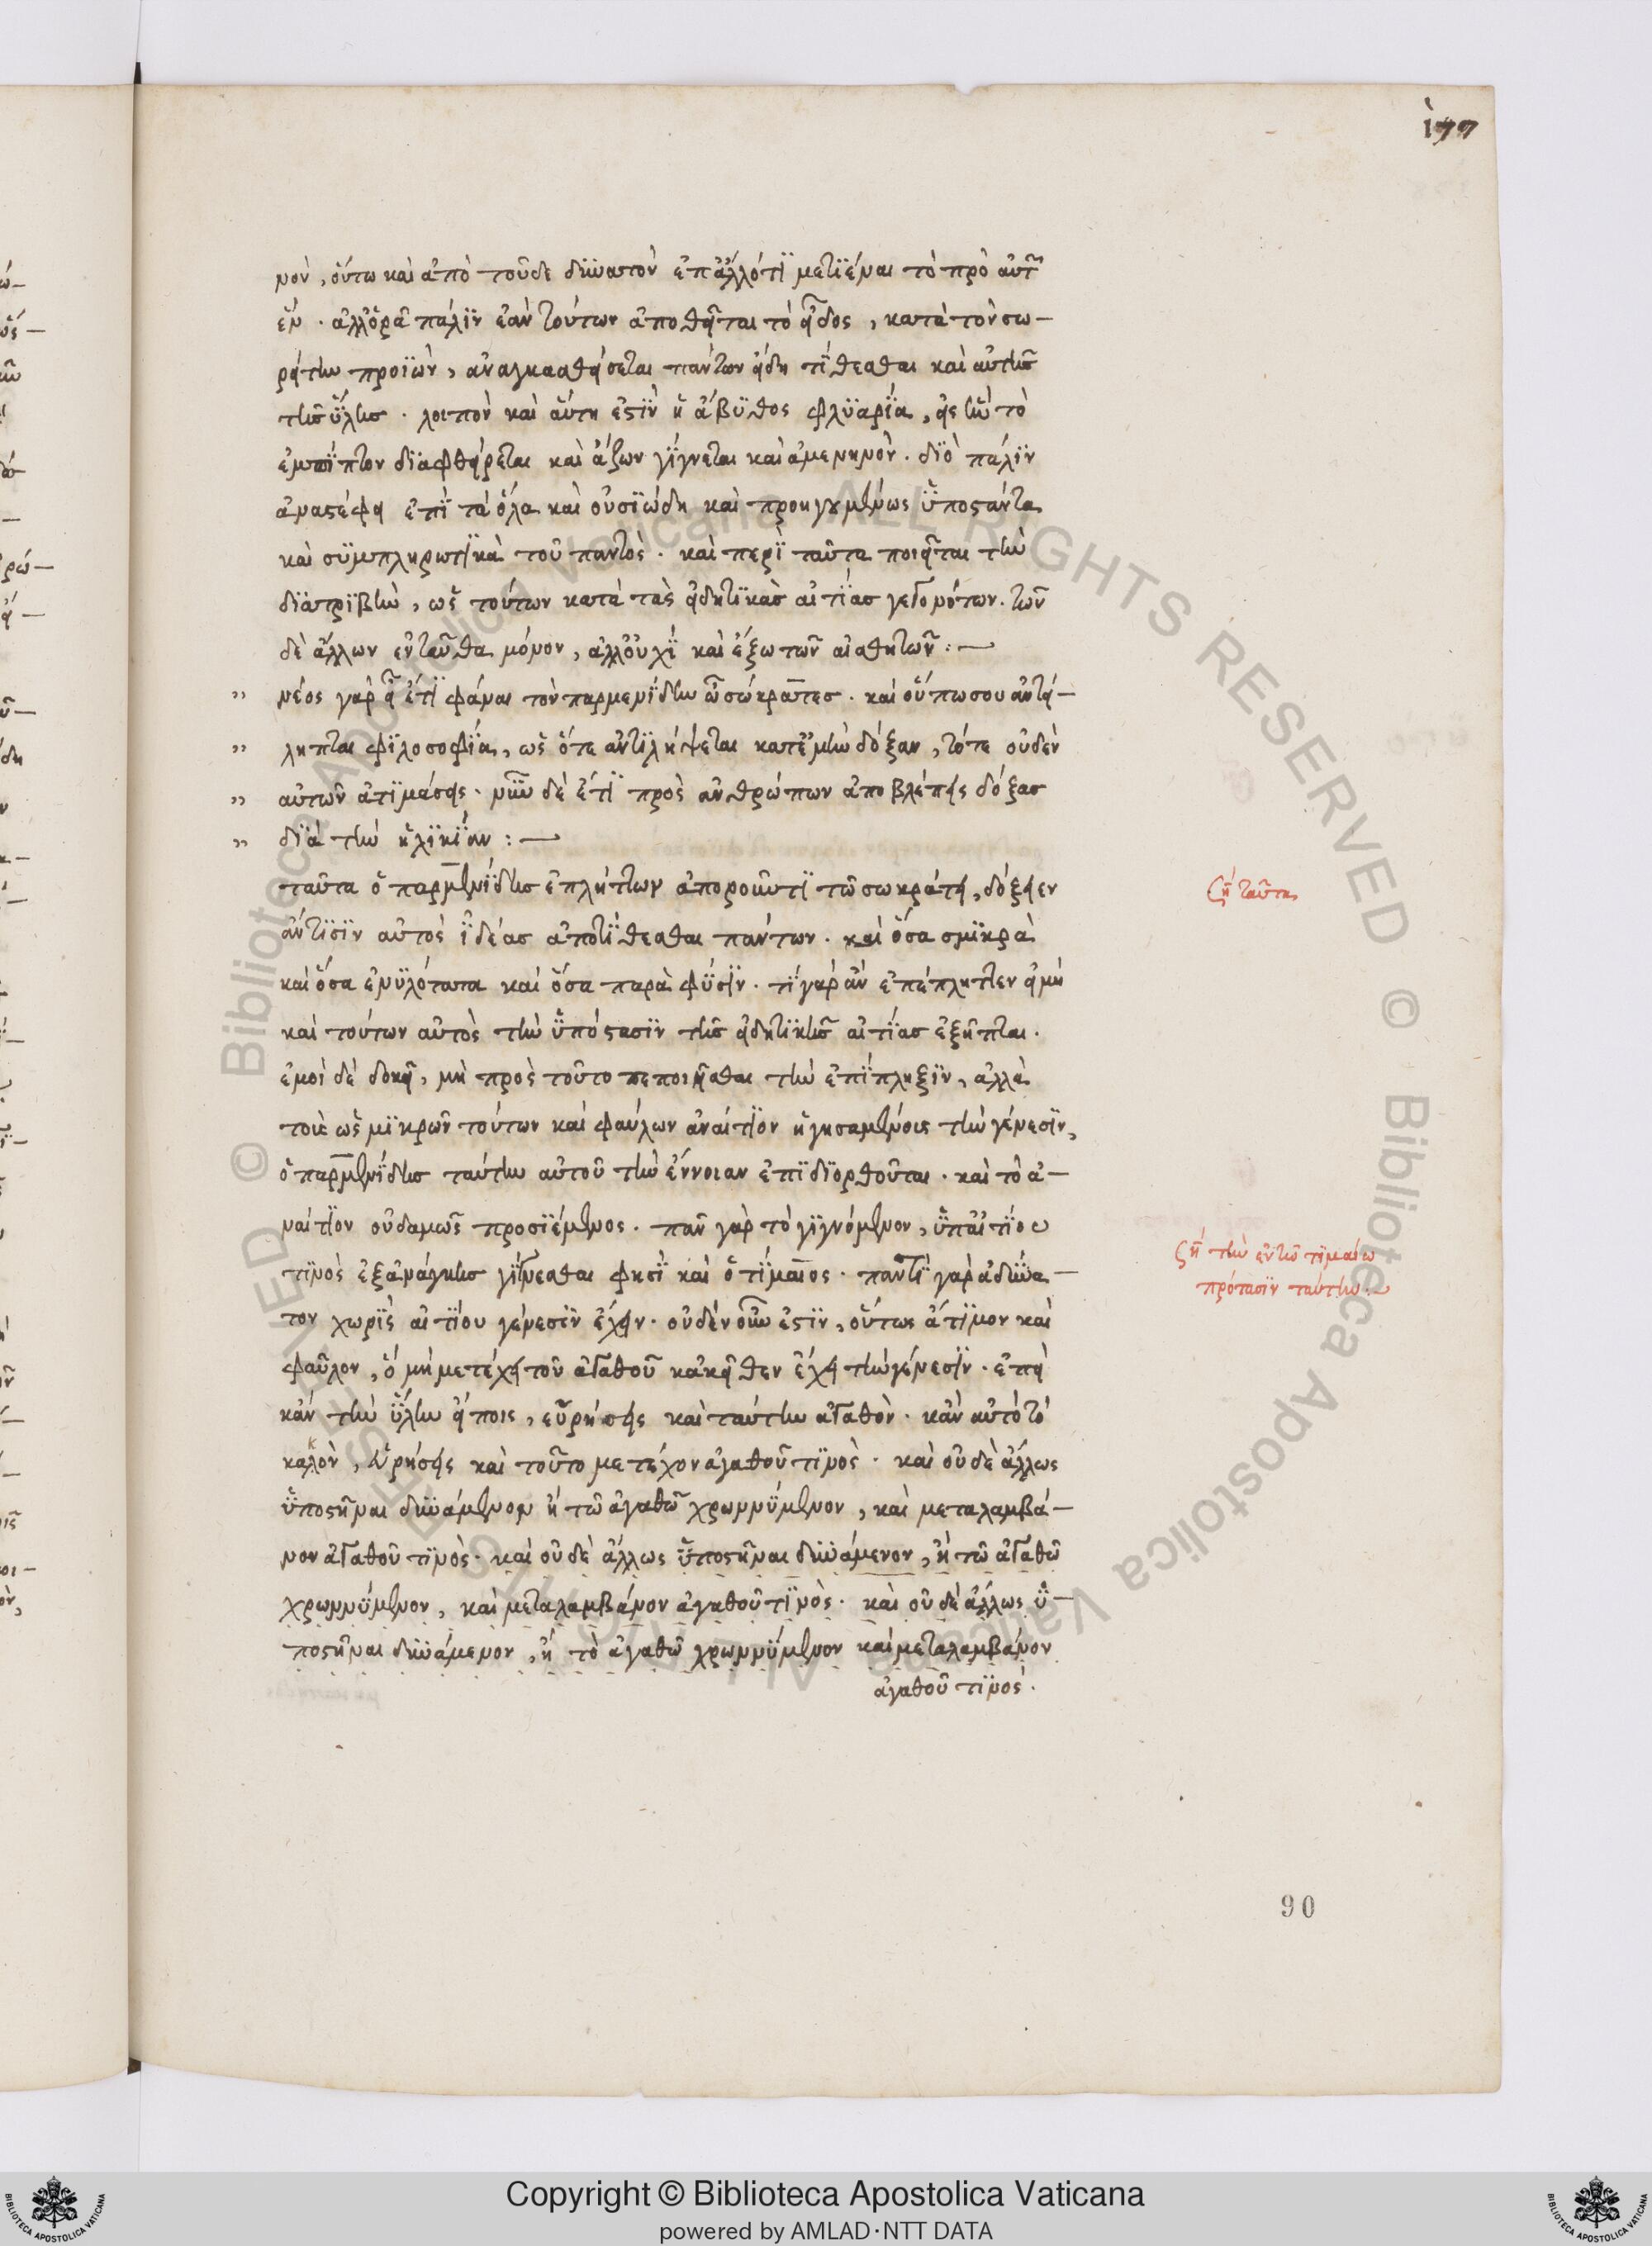 177
νον, οὕτω καὶ ἀπὸ τοῦδε δυνατὸν ἐπ' ἄλλό τι μετιέναι τὸ πρὸ αὐτοῦ
ἕν. ἀλλ' ὅρα πάλιν ἐὰν τούτων ἀποθῆται τὸ εἶδος, κατὰ τὸν σω—
ράτην προϊὼν, ἀναγκασθήσεται πάντων ἤδη τίθεσθαι καὶ αὐτῆς
τῆς ὕλης. λοιπὸν καὶ αὕτη ἐστὶν ἡ ἄβυθος φλυαρία, εἰς ἣν τὸ
ἐμπῖπτον διαφθείρεται καὶ ἄζων γίγνεται καὶ ἀμενηνόν. διὸ πάλιν
ἀναστρέφει ἐπὶ τὰ ὅλα καὶ οὐσιώδη καὶ προηγουμένως ὑποστάντα
καὶ συμπληρωτικὰ τοῦ παντός. καὶ περὶ ταῦτα ποιεῖται τὴν
διατριβὴν, ὡς τούτων κατὰ τὰς εἰδητικὰς αἰτίας γεγονότων. τῶν
δὲ ἄλλων ἐνταῦθα μόνον, ἀλλ' οὐχὶ καὶ ἔξω τῶν αἰσθητῶν :—
" νέος γὰρ εἶ ἔτι φάναι τὸν παρμενίδην ὦ σώκρατες. καὶ οὔπω σου ἀντεί—
" ληπται φιλοσοφία, ὡς ὅτε ἀντιλήψεται κατ' ἐμὴν δόξαν, τότε οὐδὲν
" αὐτῶν ἀτιμάσεις. νῦν δὲ ἔτι πρὸς ἀνθρώπων ἀποβλέπεις δόξας
" διὰ τὴν ἡλικίαν :—
ταῦτα ὁ παρμενίδης ἐπλήττων ἀποροῦντι τῷ σωκράτει, δόξειεν
ἄν τισιν αὐτὸς ἰδέας ἀποτίθεσθαι πάντων. καὶ ὅσα σμικρὰ
καὶ ὅσα ἐνυλότατα καὶ ὅσα παρὰ φύσιν. τί γὰρ ἂν ἐπέπληττεν εἰ μὴ
καὶ τούτων αὐτὸς τὴν ὑπόστασιν τῆς εἰδητικῆς αἰτίας ἐξῆπται.
ἐμοὶ δὲ δοκεῖ, μὴ πρὸς τοῦτο πεποιῆσθαι τὴν ἐπίπληξιν, ἀλλὰ
τοῖς ὡς μικρῶν τούτων καὶ φαύλων ἀναίτιον ἡγησαμένοις τὴν γένεσιν,
ὁ παρμενίδης ταύτην αὐτοῦ τὴν ἔννοιαν ἐπιδιορθοῦται. καὶ τὸ ἀ—
ναίτιον οὐδαμῶς προσιέμενος. πᾶν γὰρ τὸ γιγνόμενον, ὑπ' αἰτίου
τινὸς ἐξ ἀνάγκης γίγνεσθαι φησὶ καὶ ὁ τίμαιος. παντὶ γὰρ ἀδύνα—
τον χωρὶς αἰτίου γένεσιν ἔχειν. οὐδὲν οὖν ἐστὶν, οὕτως ἄτιμον καὶ
φαῦλον, ὃ μὴ μετέχει τοῦ ἀγαθοῦ κἀκεῖθεν ἔχει τὴν γένεσιν. ἐπεὶ
κἂν τὴν ὕλην εἴποις, εὑρήσεις καὶ ταύτην ἀγαθόν. κἂν αὐτὸ τὸ
κακὸν, εὑρήσεις καὶ τοῦτο μετέχον ἀγαθοῦ τινὸς. καὶ οὐδὲ ἄλλως
ὑποστῆναι δυνάμενον ἢ τῷ ἀγαθῷ χρωννύμενον, καὶ μεταλαμβά—
νον ἀγαθοῦ τινὸς. καὶ οὐδὲ ἄλλως ὑποστῆναι δυνάμενον, ἢ τῷ ἀγαθῷ
χρωννύμενον, καὶ μεταλαμβάνον ἀγαθοῦ τινὸς. καὶ οὐδὲ ἄλλως ὑ—
ποστῆναι δυνάμενον, ἢ τὸ ἀγαθῷ χρωννύμενον καὶ μεταλαμβάνον
ἀγαθοῦ τινός.
ζή ταῦτα
ζή τὴν ἐν τῷ τιμαίω
πρότασιν ταύτην
90
Copyright © Biblioteca Apostolica Vaticana
powered by AMLAD·NTT DATA